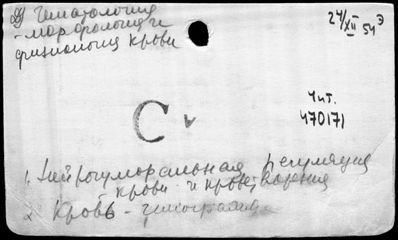 Гематология
- морфология и
физиология крови
24/XII 54 э
Чит.
470171
С
1. Нейрогуморальная регуляция
крови и кроветворения
2. Кровь -